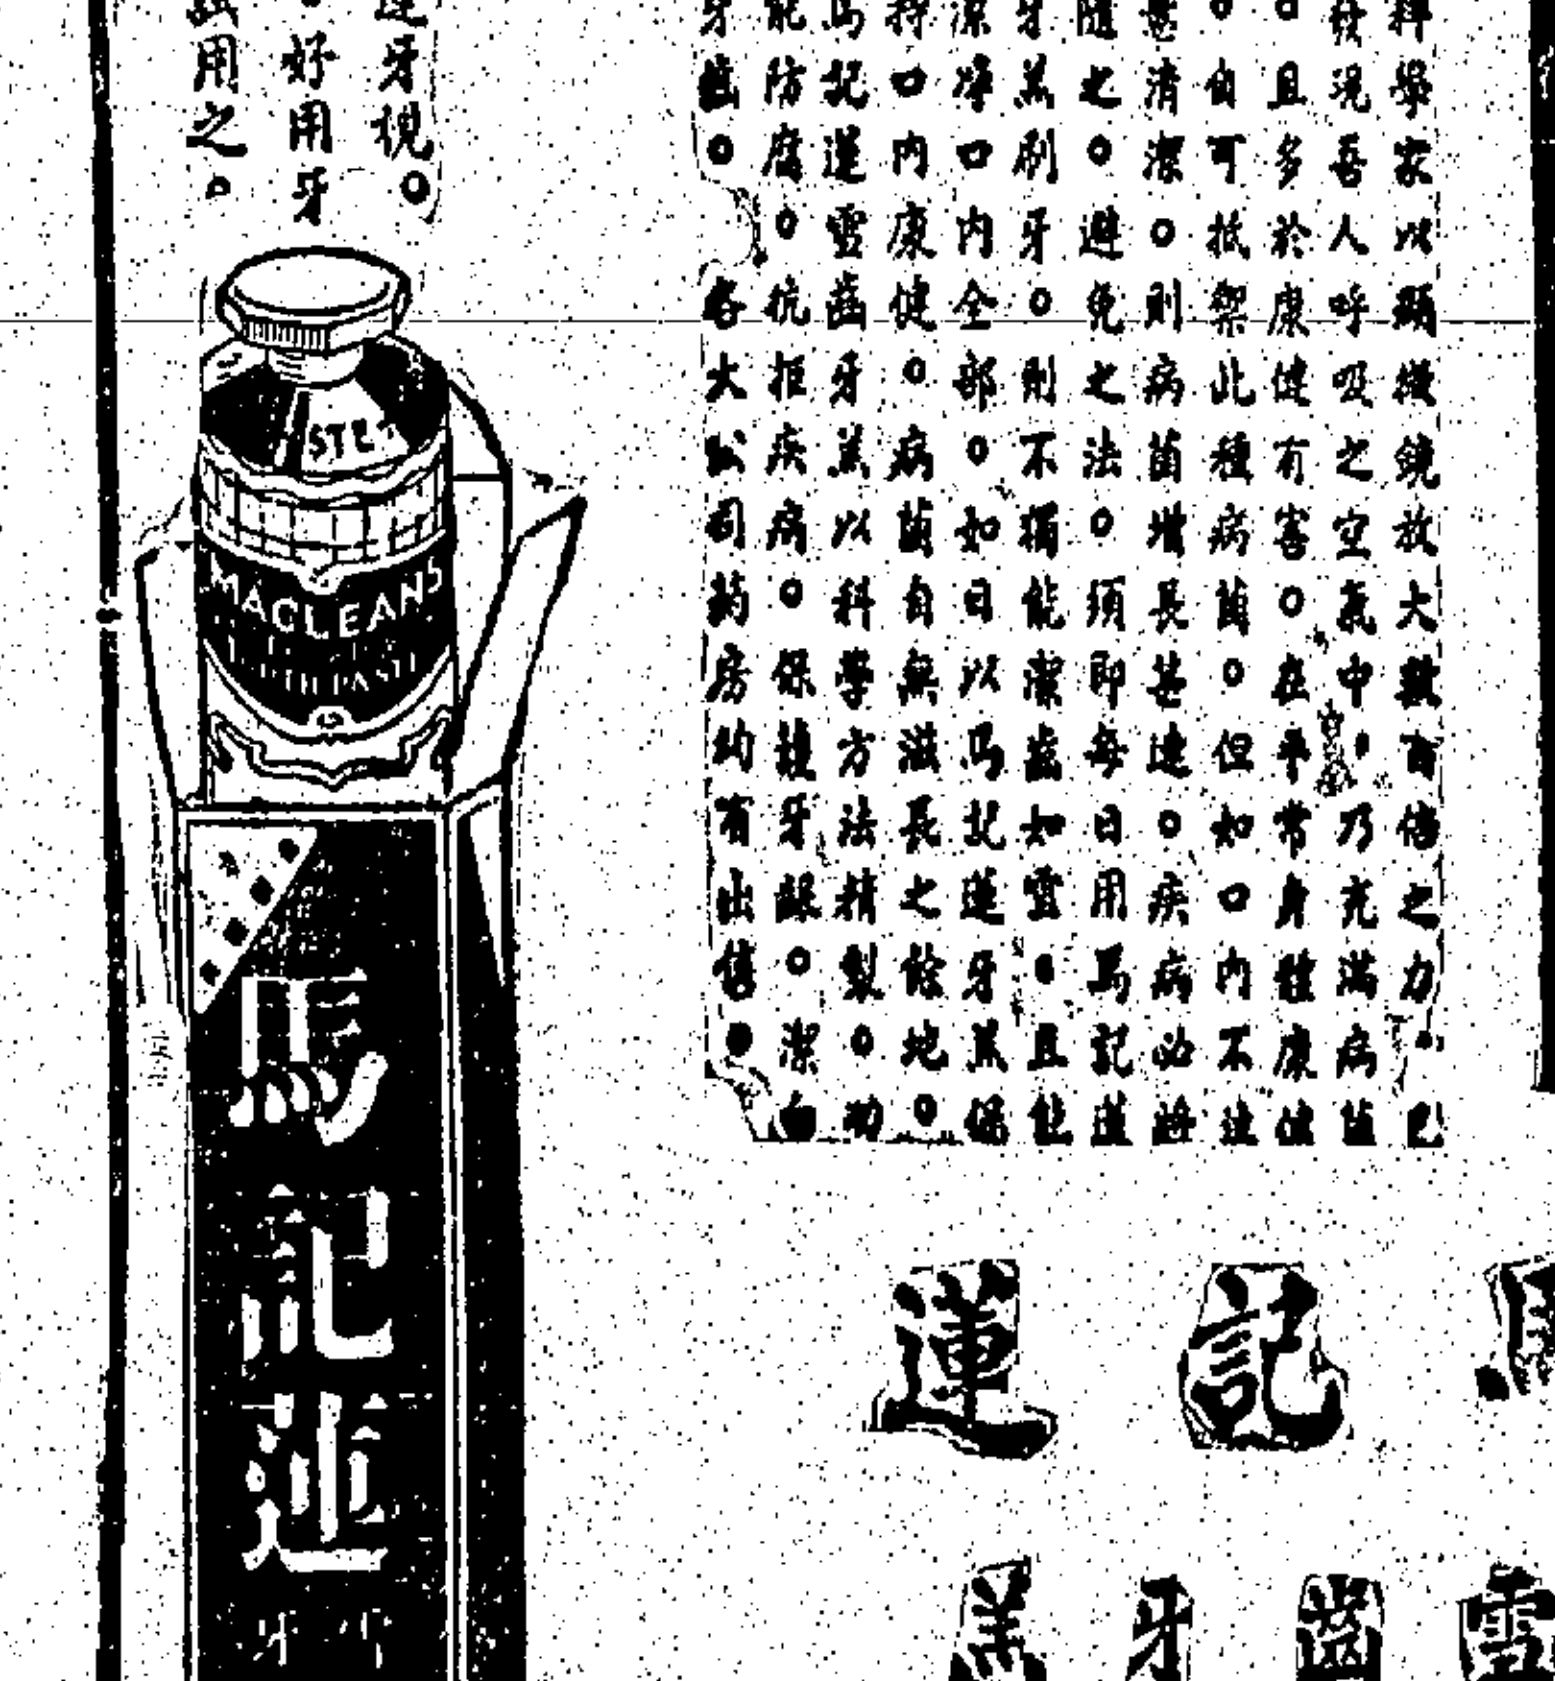 科學家以顯微鏡放大數百倍之力。已
發現吾人呼吸之空氣中。乃充滿病菌
。且多於康健有害。在平常身體康健
。自可抵禦此種病菌。但如口內不速
意清潔。則病菌增長甚速。疾病必將
隨之。避免之法。須即每日用馬記蓮
牙羔刷牙。則不獨能潔齒如雪。且能
潔淨口內全部。如日以馬記蓮牙羔保
持口內康健。病菌自無滋長之餘地。
馬記蓮雪齒牙羔以科學方法精製。功
能防腐。抗拒疾病。保護牙齦。潔白
牙齒。 各大公司葯房均有出售。
蓮牙梘。
。好用牙
試用之。
MACLEANS
TOOTH PASTE
馬記蓮
馬記蓮
雪齒牙羔